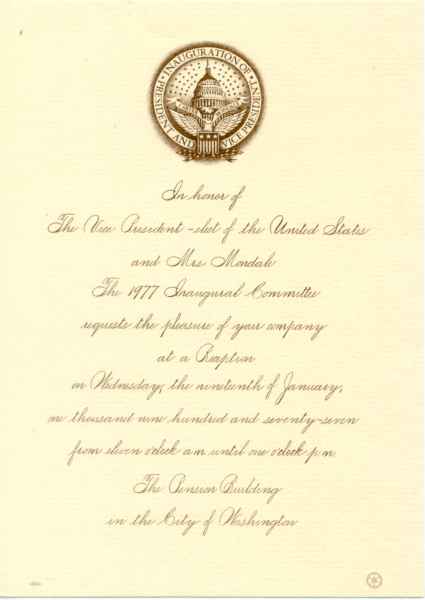 INAUGURATION OF PRESIDENT AND VICE PRESIDENT
In honor of
The Vice President-elect of the United States
and Mrs. Mondale
The 1977 Inaugural Committee
requests the pleasure of your company
at a Reception
on Wednesday, the nineteenth of January,
one thousand nine hundred and seventy-seven
from eleven o'clock a.m. until one o'clock p.m.
The Pension Building
in the City of Washington